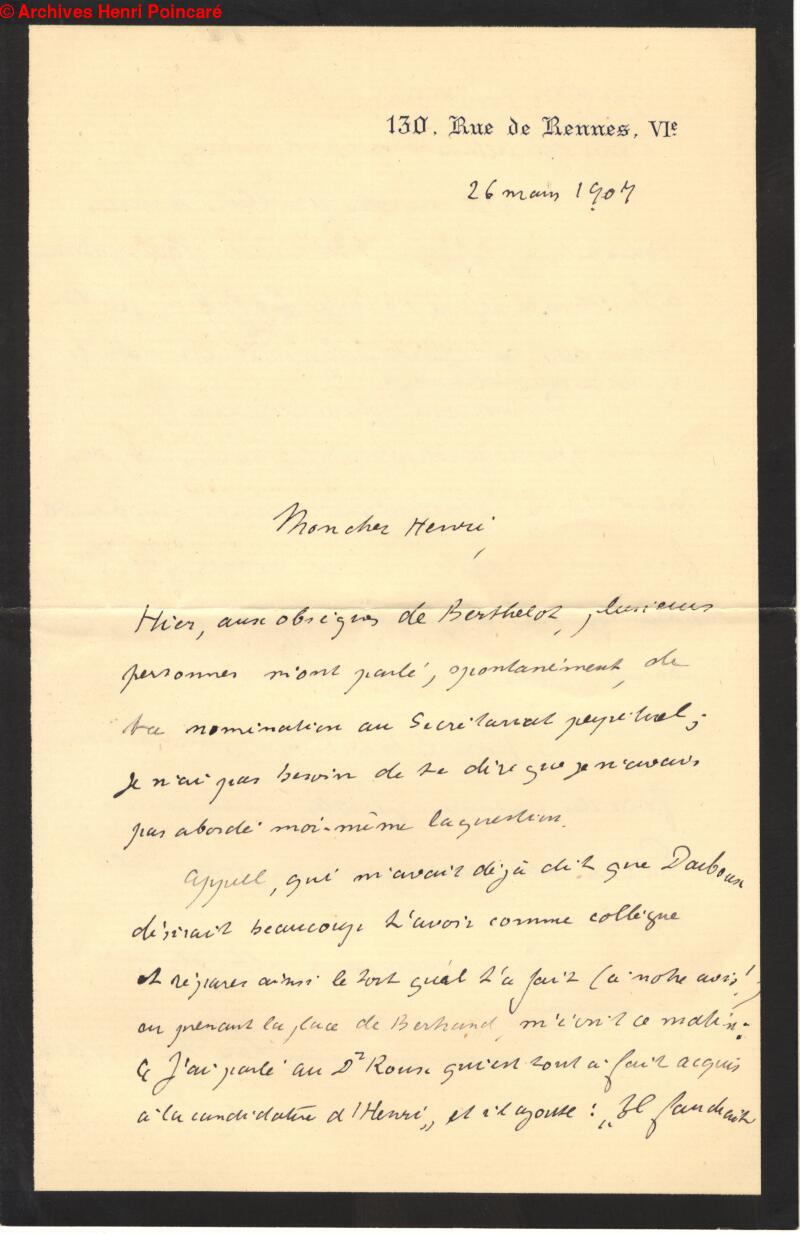 © Archives Henri Poincaré
130, Rue de Rennes, VIe
26 mars 1907
Mon cher Henri,
Hier, aux obsèques de Berthelot, plusieurs
personnes m'ont parlé, spontanément, de
ta nomination au Secrétariat perpétuel ;
je n'ai pas besoin de te dire que je n'avais
pas abordé moi-même la question.
Appell, qui m'avait déjà dit que Darboux
désirait beaucoup t'avoir comme collègue
et réparer ainsi le tort qu'il t'a fait (à notre avis !)
en prenant la place de Bertrand, m'écrit ce matin :
« J'ai parlé au Dr Roux qui est tout à fait acquis
à la candidature d'Henri „ et il ajoute : „ Il faudrait